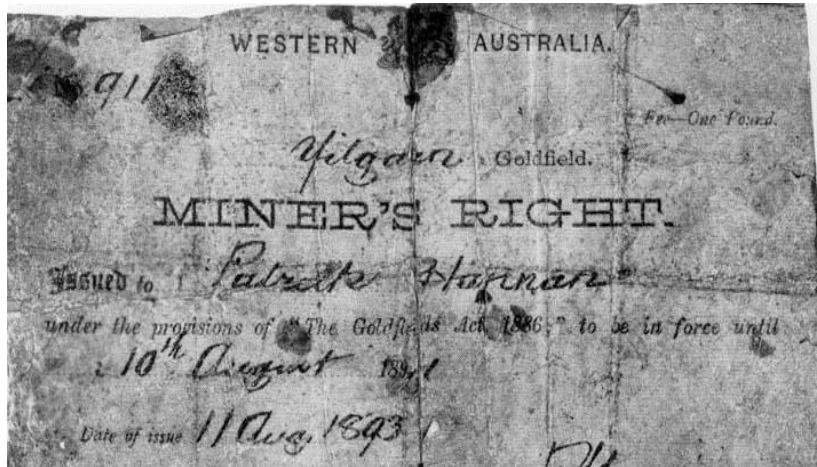 WESTERN AUSTRALIA.
No 911
Fee—One Pound.
Yilgarn Goldfield.
MINER'S RIGHT.
Issued to Patrick Hannan
under the provisions of "The Goldfields Act, 1886," to be in force until
10th August 1894
Date of issue 11 Aug. 1893